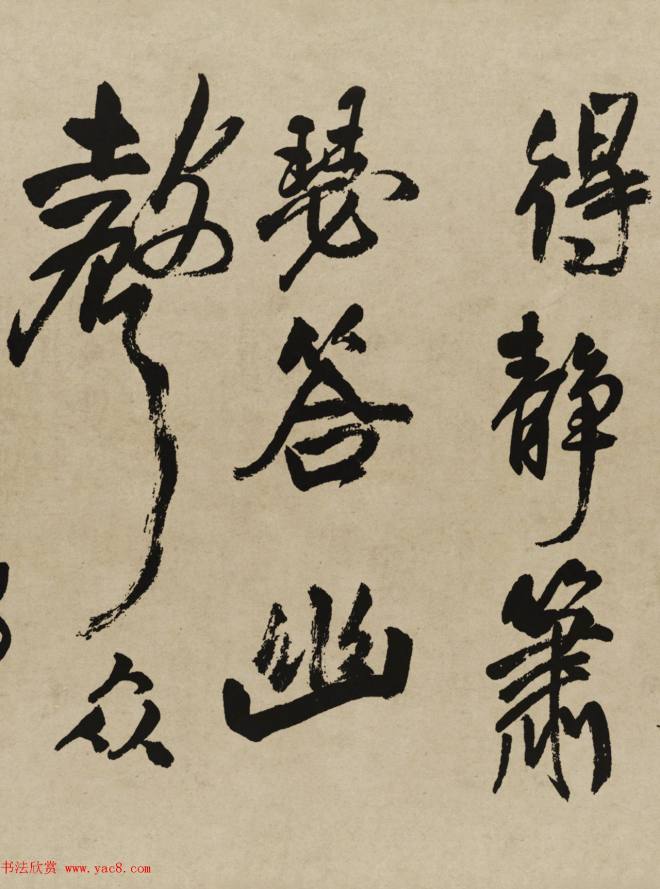 得静簫
瑟答幽
聲众
书法欣赏 www.yac8.com